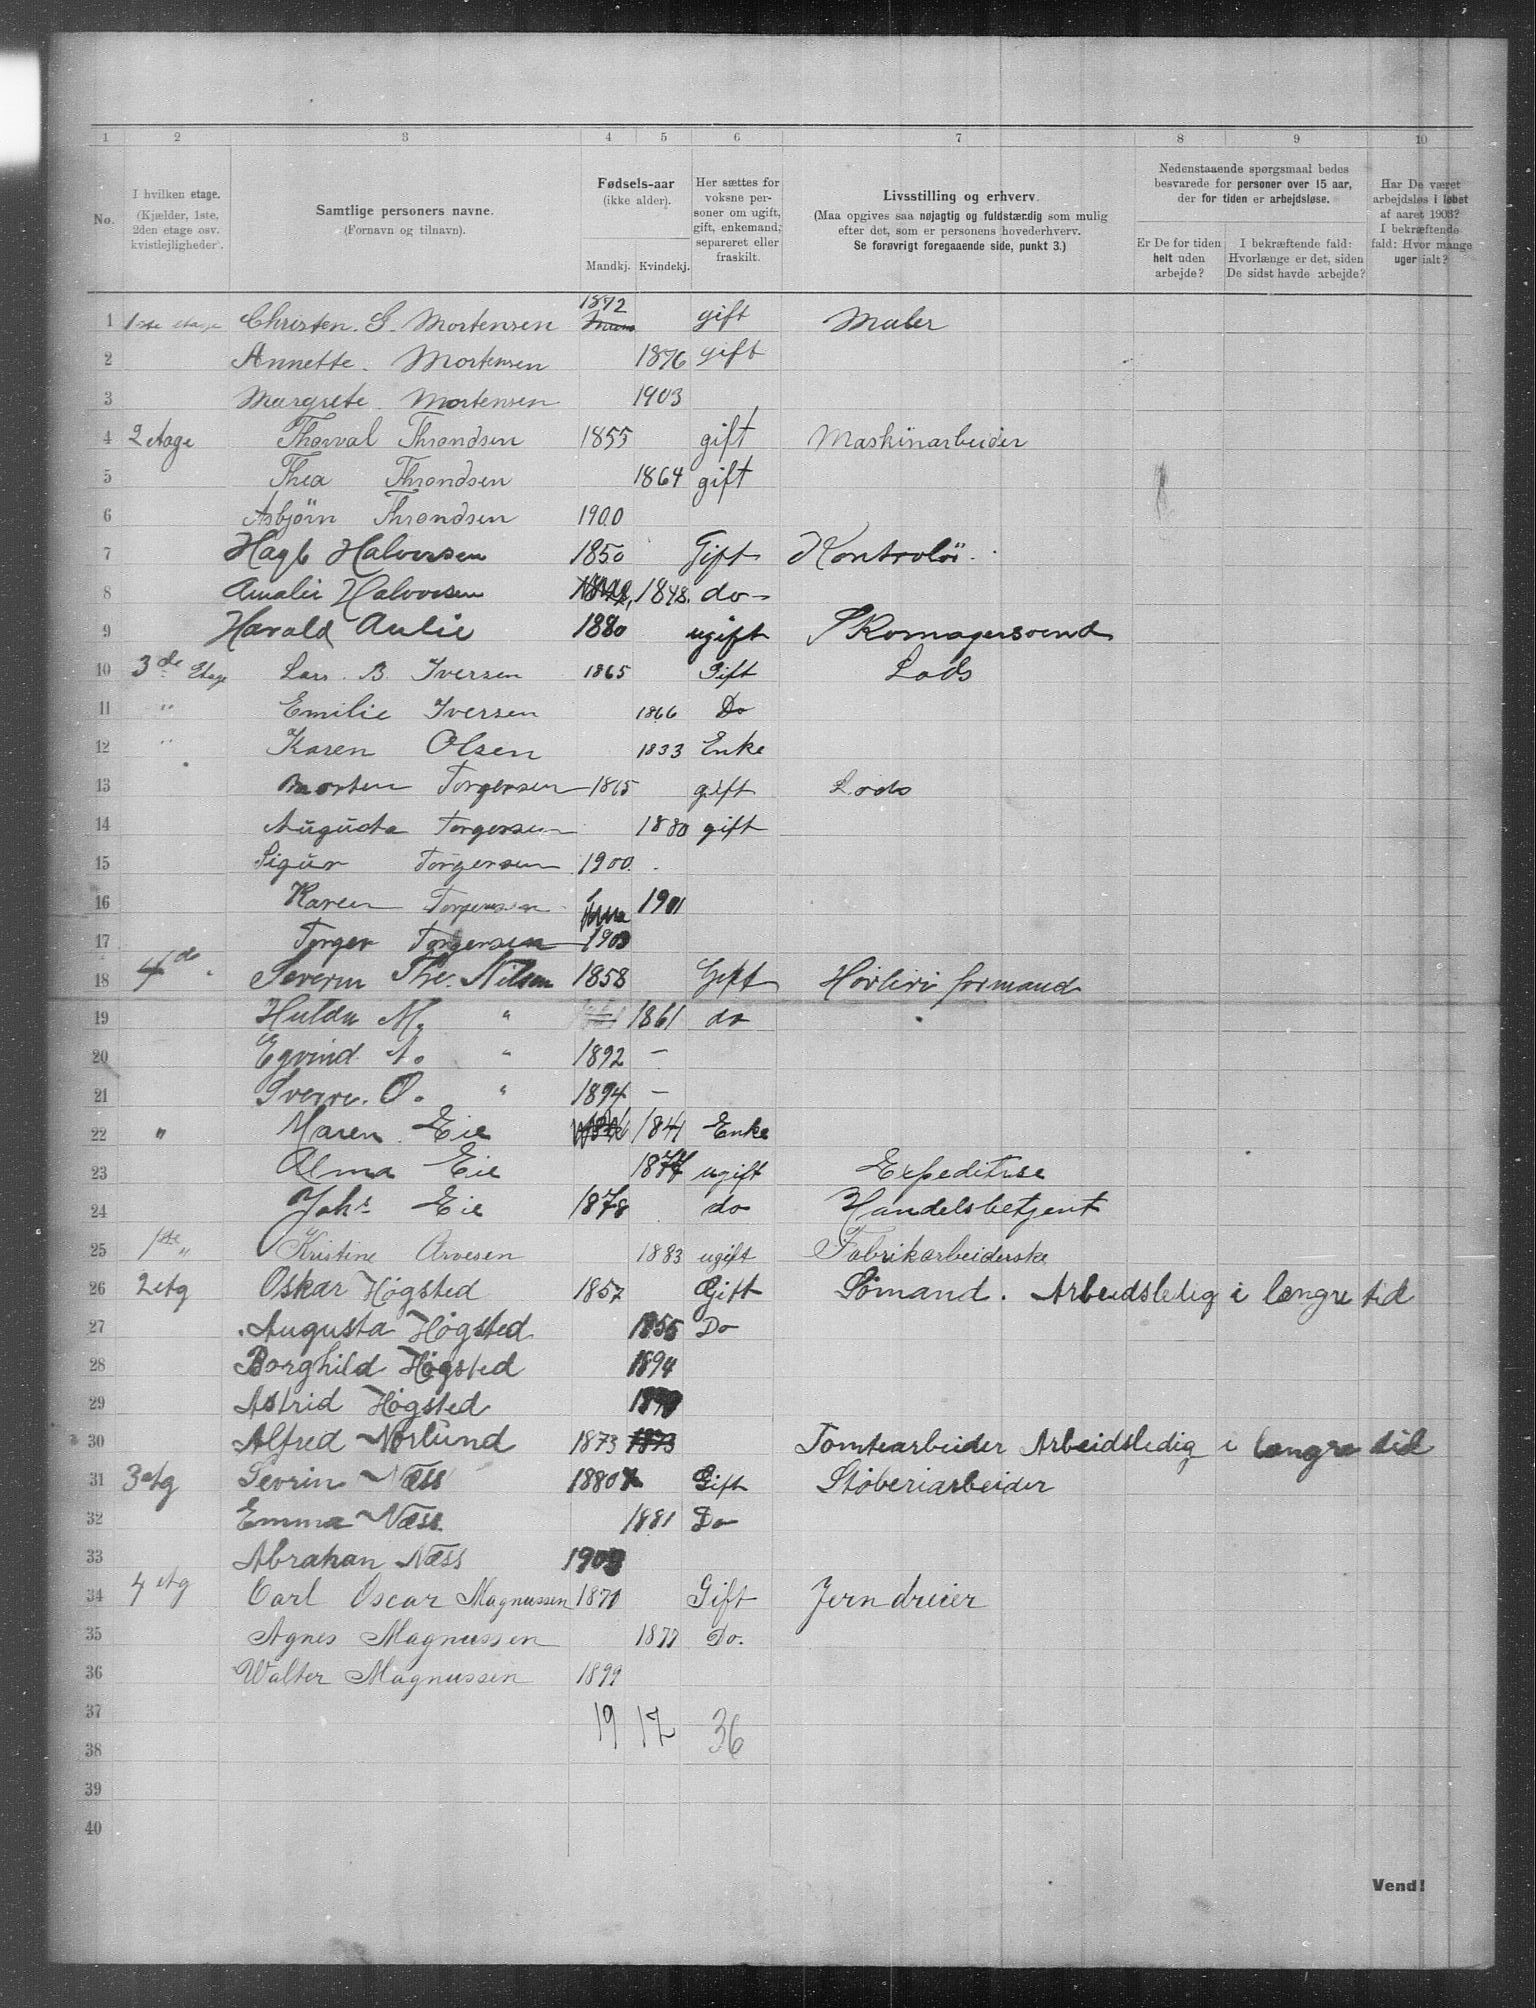 1 2 3 4 5 6 7 8 9 10
No.
I hvilken etage. (Kjælder, 1ste, 2den etage osv. kvistlejligheder).
Samtlige personers navne. (Fornavn og tilnavn).
Fødsels-aar (ikke alder).
Mandkj. Kvindekj.
Her sættes for voksne personer om ugift, gift, enkemand, separeret eller fraskilt.
Livsstilling og erhverv. (Maa opgives saa nøjagtig og fuldstærdig som mulig efter det, som er personens hovederhverv. Se forøvrigt foregaaende side, punkt 3.)
Nedenstaaende spørgsmaal bedes besvarede for personer over 15 aar, der for tiden er arbejdsløse.
Er De for tiden helt uden arbejde?
I bekræftende fald: Hvorlænge er det, siden De sidst havde arbejde?
Har De været arbejdsløs i løbet af aaret 1903? I bekræftende fald: Hvor mange uger ialt?
1 1ste etage Christen. G. Mortensen 1872 gift Maler
2 Annette. Mortensen 1876 gift
3 Margrete. Mortensen 1903
4 2 etage Thorval Throndsen 1855 gift Maskinarbeider
5 Thea Throndsen 1864 gift
6 Asbjørn Throndsen 1900
7 Hagb Halvorsen 1850 Gift Kontrolør
8 Amalie Halvorsen 1848. do
9 Harald Aulie 1880 ugift Skomagersvend
10 3de Etage Lars. B. Iversen 1865 Gift Lods
11 " Emilie Iversen 1866 Do
12 " Karen Olsen 1833 Enke
13 Morten Torgersen 1865 gift Lods
14 Augusta Torgersen 1880 gift
15 Sigur Torgersen 1900.
16 Karen Torgersen 1901
17 Torger Torgersen 1903
18 4de Severin The. Nilsen 1858 Gift Høvleri formand
19 Hulda M. " 1861 do
20 Eyvind A. " 1892 –
21 Sverre. O. " 1894 –
22 " Maren Eie 1841 Enke
23 Alma Eie 1877 ugift Expeditrise
24 Johs Eie 1878 do Handelsbetjent
25 1ste " Kristine Arvesen 1883 ugift Fabrikarbeiderske
26 2 etg Oskar Høgsted 1857 Gift Sømand. Arbeidsledig i længre tid
27 Augusta Høgsted 1855 Do
28 Borghild Høgsted 1894
29 Astrid Høgsted
30 Alfred Norlund 1873 1873 Tomtearbeider Arbeidsledig i længre tid
31 3 etg Sevrin Næss 1880 Gift Støberiarbeider
32 Emma Næss 1881 Do
33 Abrahan Næss 1903
34 4 etg Carl Oscar Magnussen 1871 Gift Jerndreier
35 Agnes Magnussen 1877 Do.
36 Walter Magnussen 1899
37 19 17 36
38
39
40
Vend!